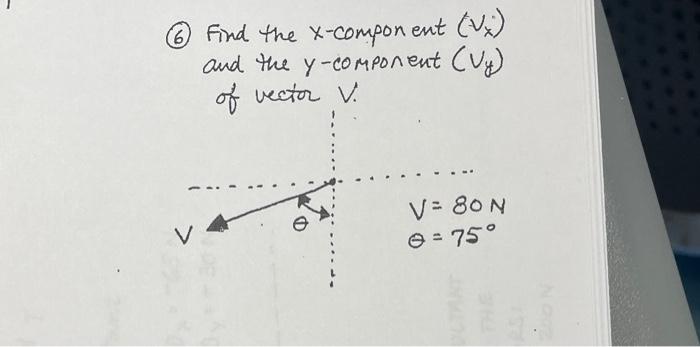 ⑥ Find the x-component (Vx)
and the y-component (Vy)
of vector V.
V
θ
V = 80 N
θ = 75°